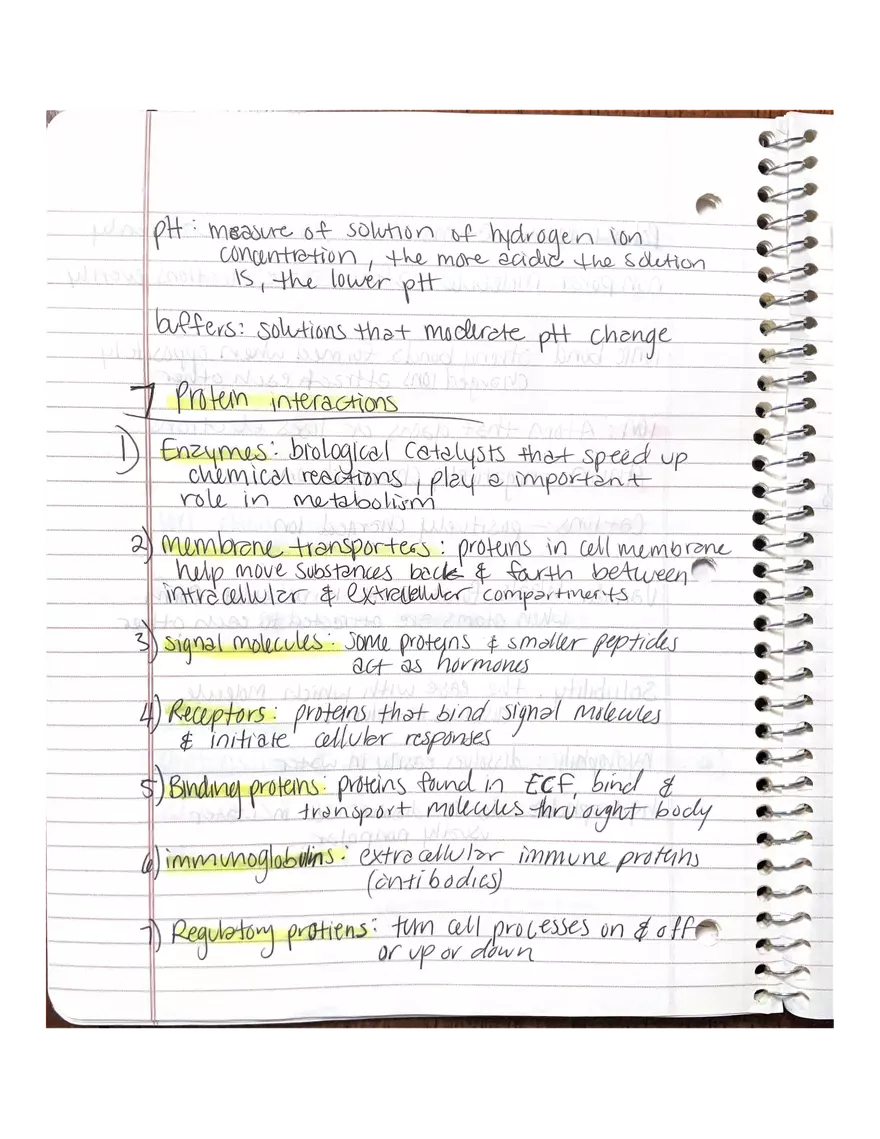 pH: measure of solution of hydrogen ion
concentration, the more acidic the solution
is, the lower pH
buffers: solutions that moderate pH change
7 Protein interactions
1) Enzymes: biological catalysts that speed up
chemical reactions, play a important
role in metabolism
2) membrane transporters: proteins in cell membrane
help move substances back & farth between
intracellular & extracellular compartments
3) signal molecules: some proteins & smaller peptides
act as hormones
4) Receptors: proteins that bind signal molecules
& initiate cellular responses
5) Binding proteins: proteins found in ECF, bind &
transport molecules thru ought body
6) immunoglobulins: extracellular immune proteins
(antibodies)
7) Regulatory protiens: turn cell processes on & off
or up or down